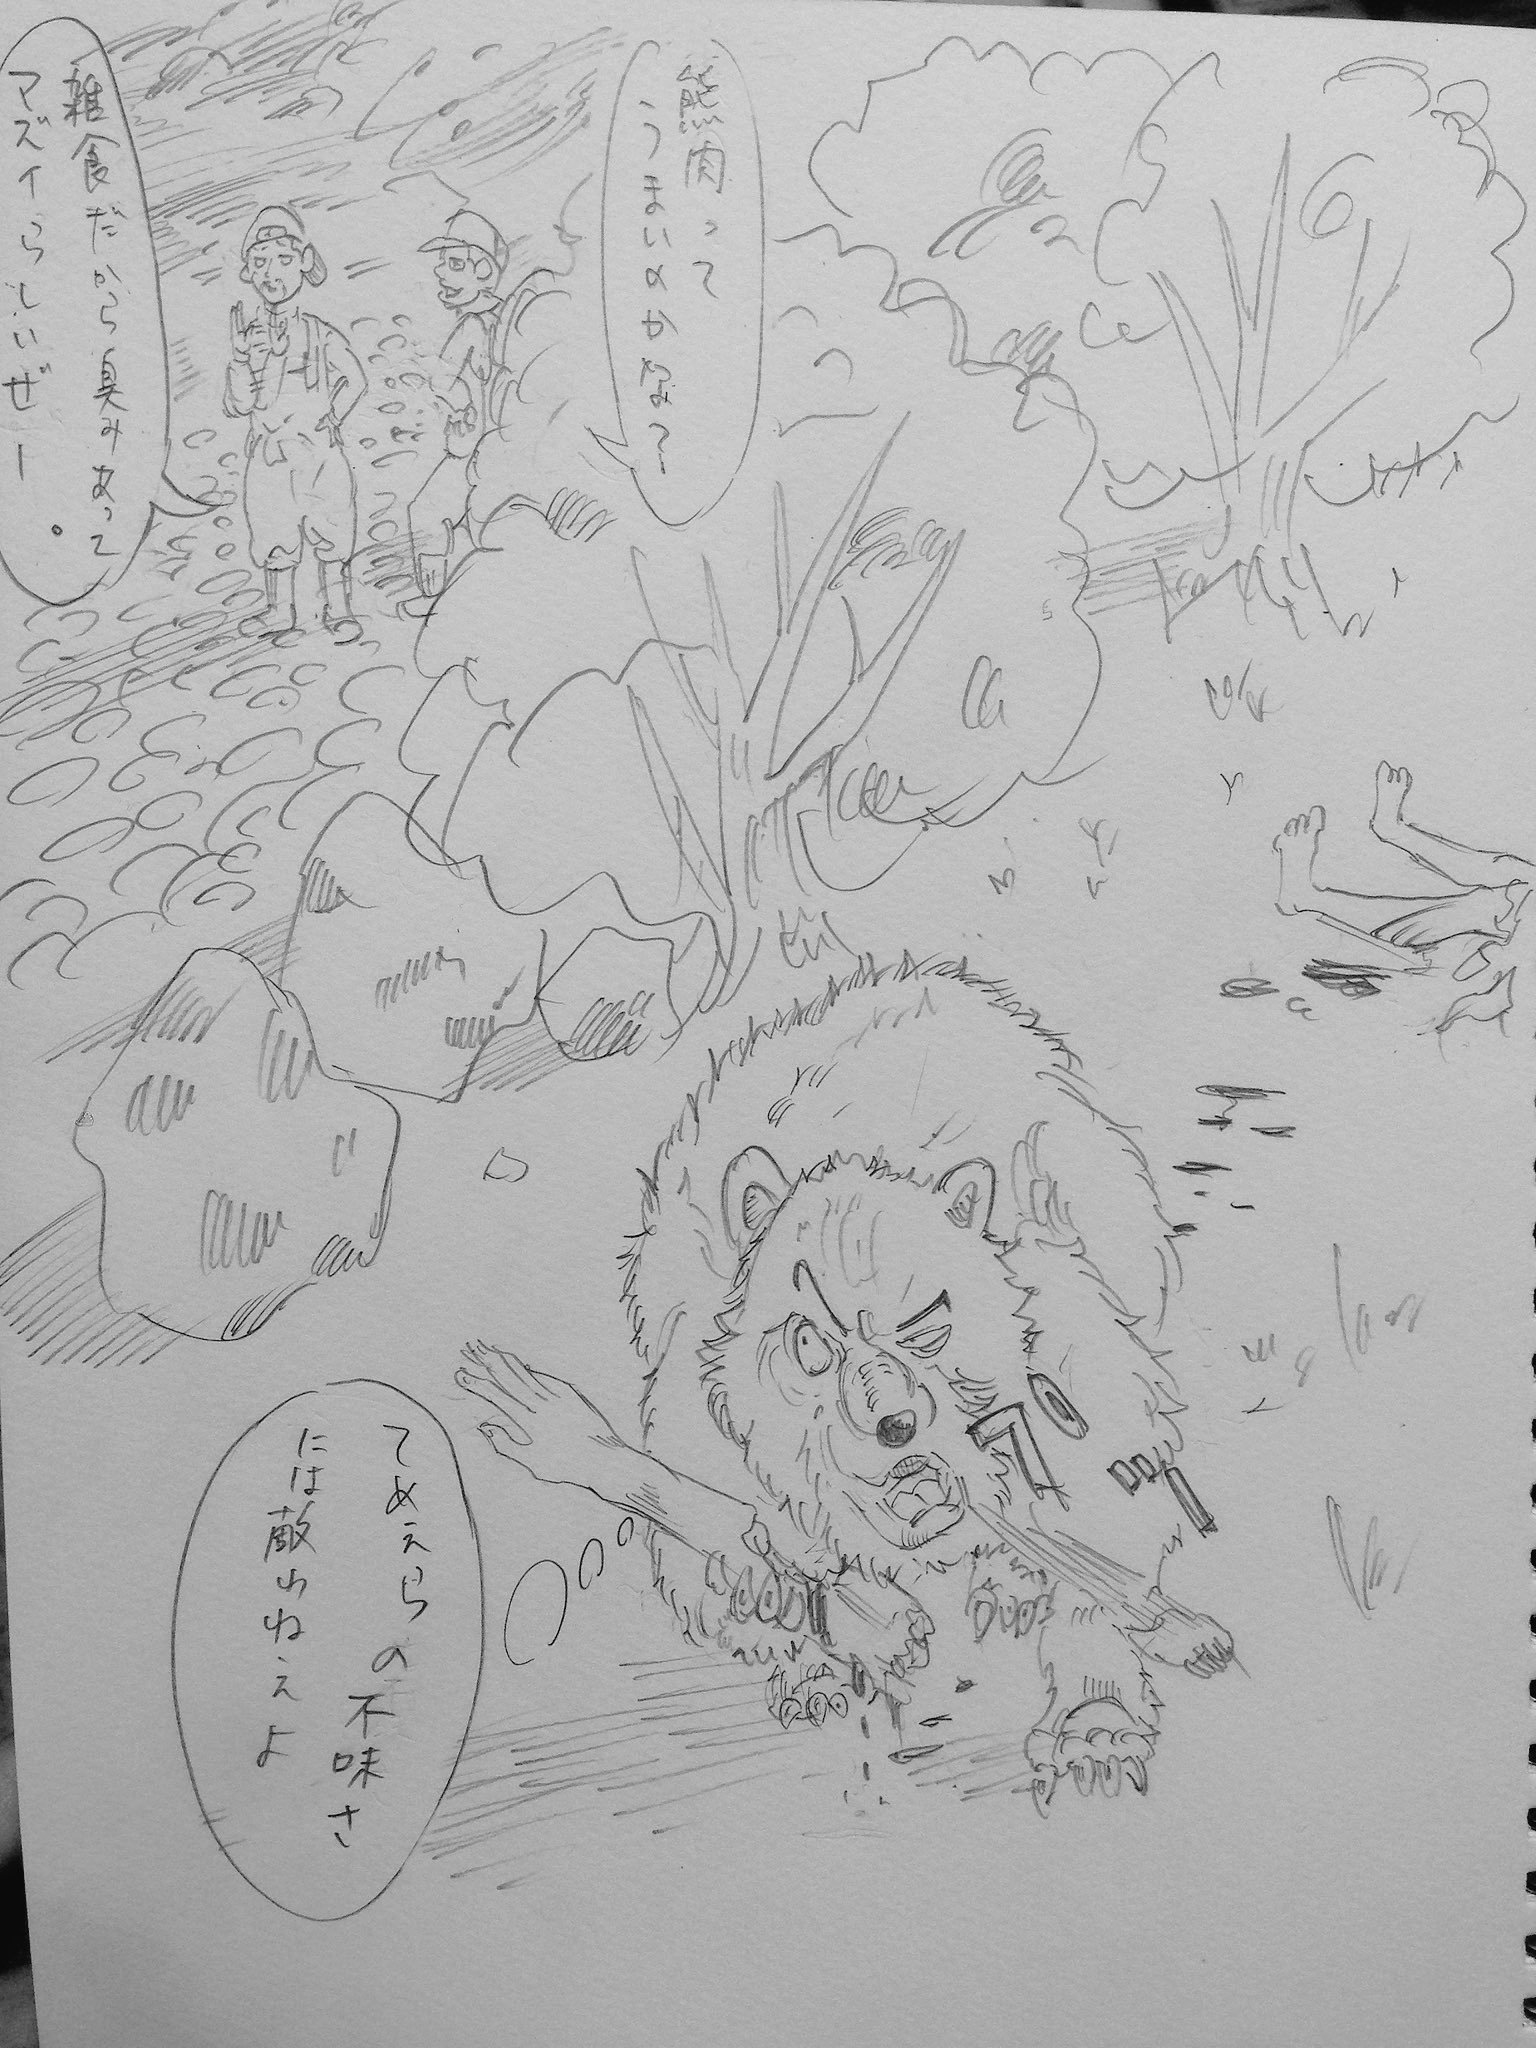 熊肉って
うまいのかな〜
雑食だから臭みあって
マズイらしいぜー。
プッ
てめえらの不味さ
には敵わねえよ